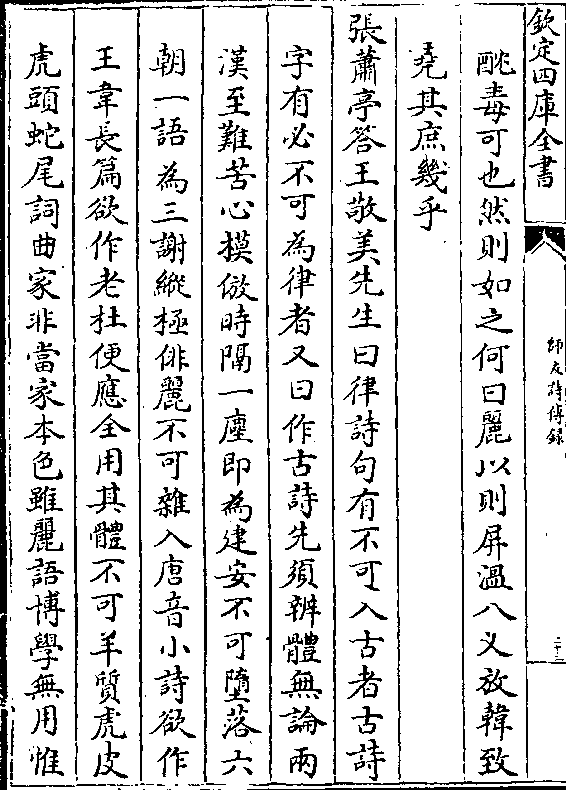 欽定四庫全書
師友詩傳録
二十三
酖毒可也然則如之何曰麗以則屏溫八叉放韓致
堯其庶幾乎
張蕭亭答王敬美先生曰律詩句有不可入古者古詩
字有必不可為律者又曰作古詩先須辨體無論兩
漢至難苦心摸倣時隔一塵即為建安不可墮落六
朝一語為三謝縱極俳麗不可雜入唐音小詩欲作
王韋長篇欲作老杜便應全用其體不可羊質虎皮
虎頭蛇尾詞曲家非當家本色雖麗語博學無用惟